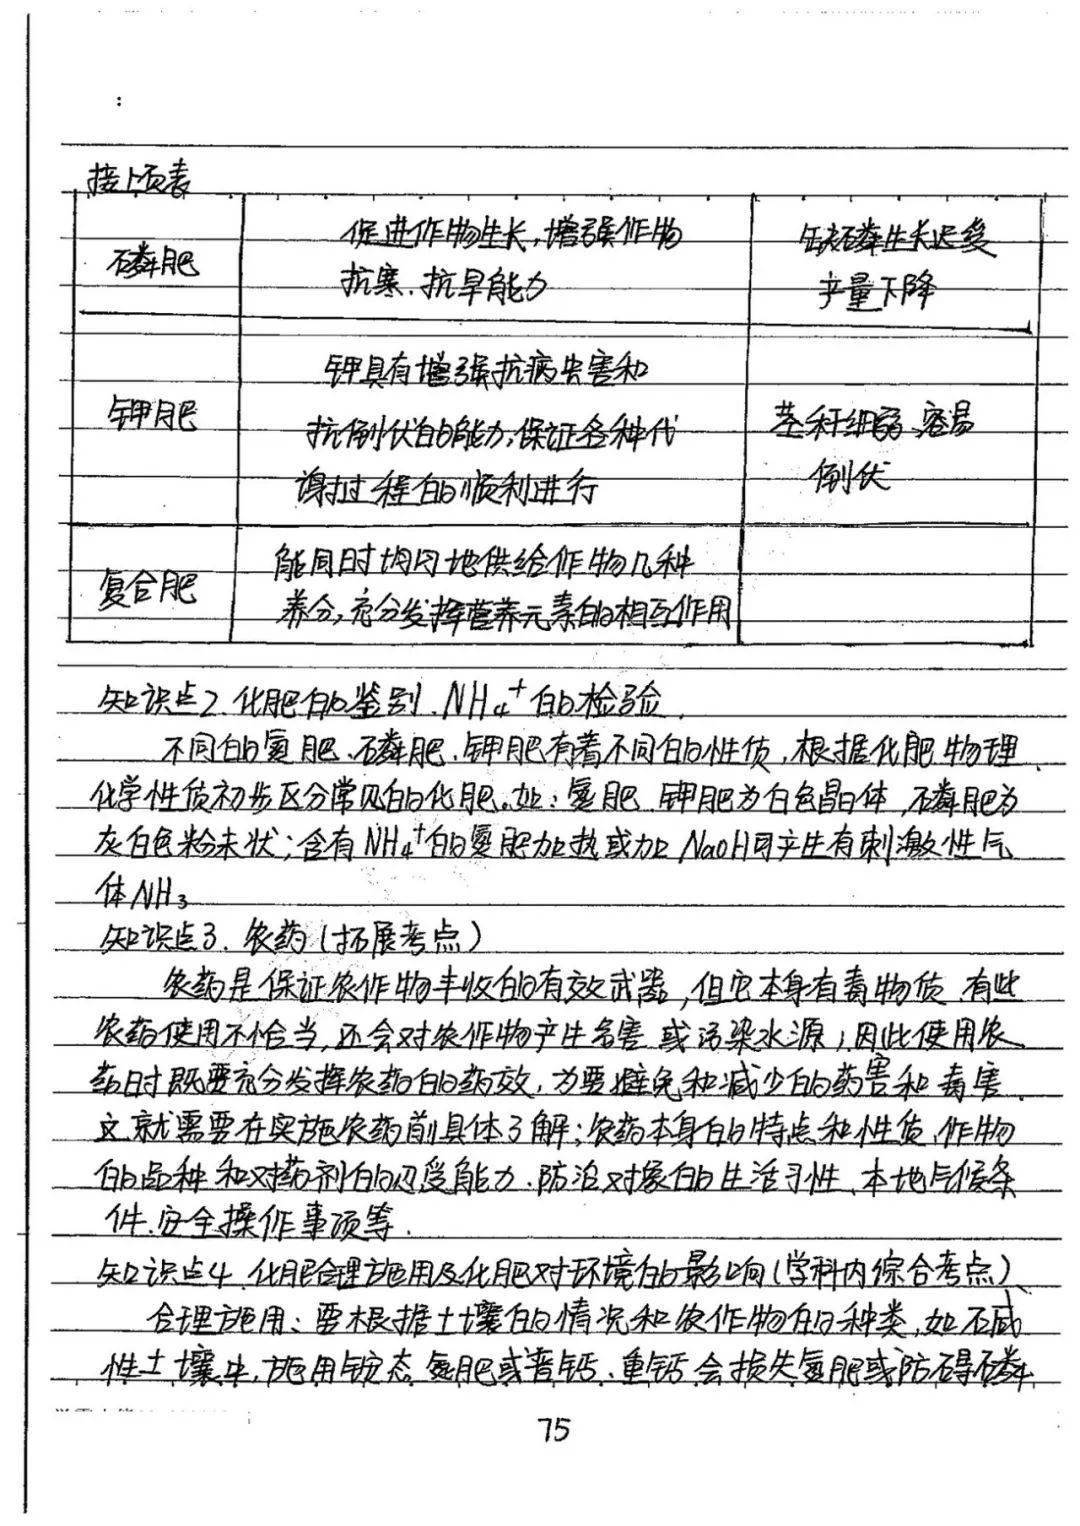 接上页表
磷肥
促进作物生长,增强作物
抗寒、抗旱能力
缺磷生长迟缓
产量下降
钾肥
钾具有增强抗病虫害和
抗倒伏的能力,保证各种代
谢过程的顺利进行
茎秆细弱、容易
倒伏
复合肥
能同时均匀地供给作物几种
养分,充分发挥营养元素的相互作用
知识点2.化肥的鉴别.NH₄⁺的检验.
不同的氮肥、磷肥、钾肥有着不同的性质,根据化肥物理、
化学性质初步区分常见的化肥。如:氮肥、钾肥为白色晶体,磷肥为
灰白色粉末状;含有NH₄⁺的氮肥加热或加NaOH可产生有刺激性气
体NH₃
知识点3.农药(拓展考点)
农药是保证农作物丰收的有效武器,但它本身有毒物质,有些
农药使用不恰当,还会对农作物产生危害或污染水源,因此使用农
药时既要充分发挥农药的药效,为要避免和减少的药害和毒害.
这就需要在实施农药前具体了解;农药本身的特点和性质,作物
的品种和对药剂的忍受能力、防治对象的生活习性、本地气候条
件、安全操作事项等.
知识点4.化肥合理施用及化肥对环境的影响(学科内综合考点)
合理施用:要根据土壤的情况和农作物的种类,如石咸
性土壤中,施用铵态氮肥或普钙、重钙会损失氮肥或防碍磷
75